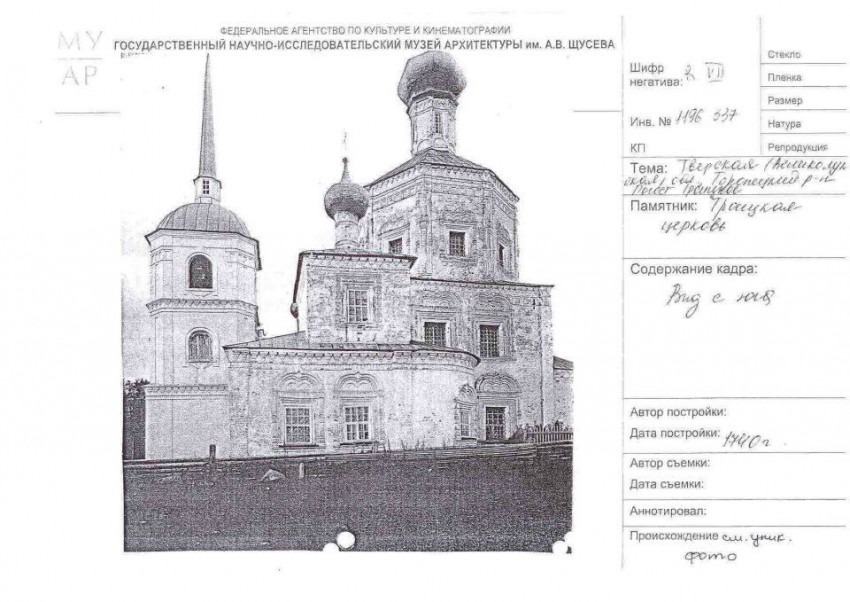 МУ
АР
ФЕДЕРАЛЬНОЕ АГЕНТСТВО ПО КУЛЬТУРЕ И КИНЕМАТОГРАФИИ
ГОСУДАРСТВЕННЫЙ НАУЧНО-ИССЛЕДОВАТЕЛЬСКИЙ МУЗЕЙ АРХИТЕКТУРЫ им. А.В. ЩУСЕВА
Шифр
негатива: VII
Инв. № 1196 337
КП
Стекло
Пленка
Размер
Натура
Репродукция
Тема: Тверская (Великолук
ская) обл. Торопецкий р-н
Памятник: Троицкая
церковь
Содержание кадра:
Вид с юга
Автор постройки:
Дата постройки:
Автор съемки:
Дата съемки:
Аннотировал:
Происхождение см. уник.
фото